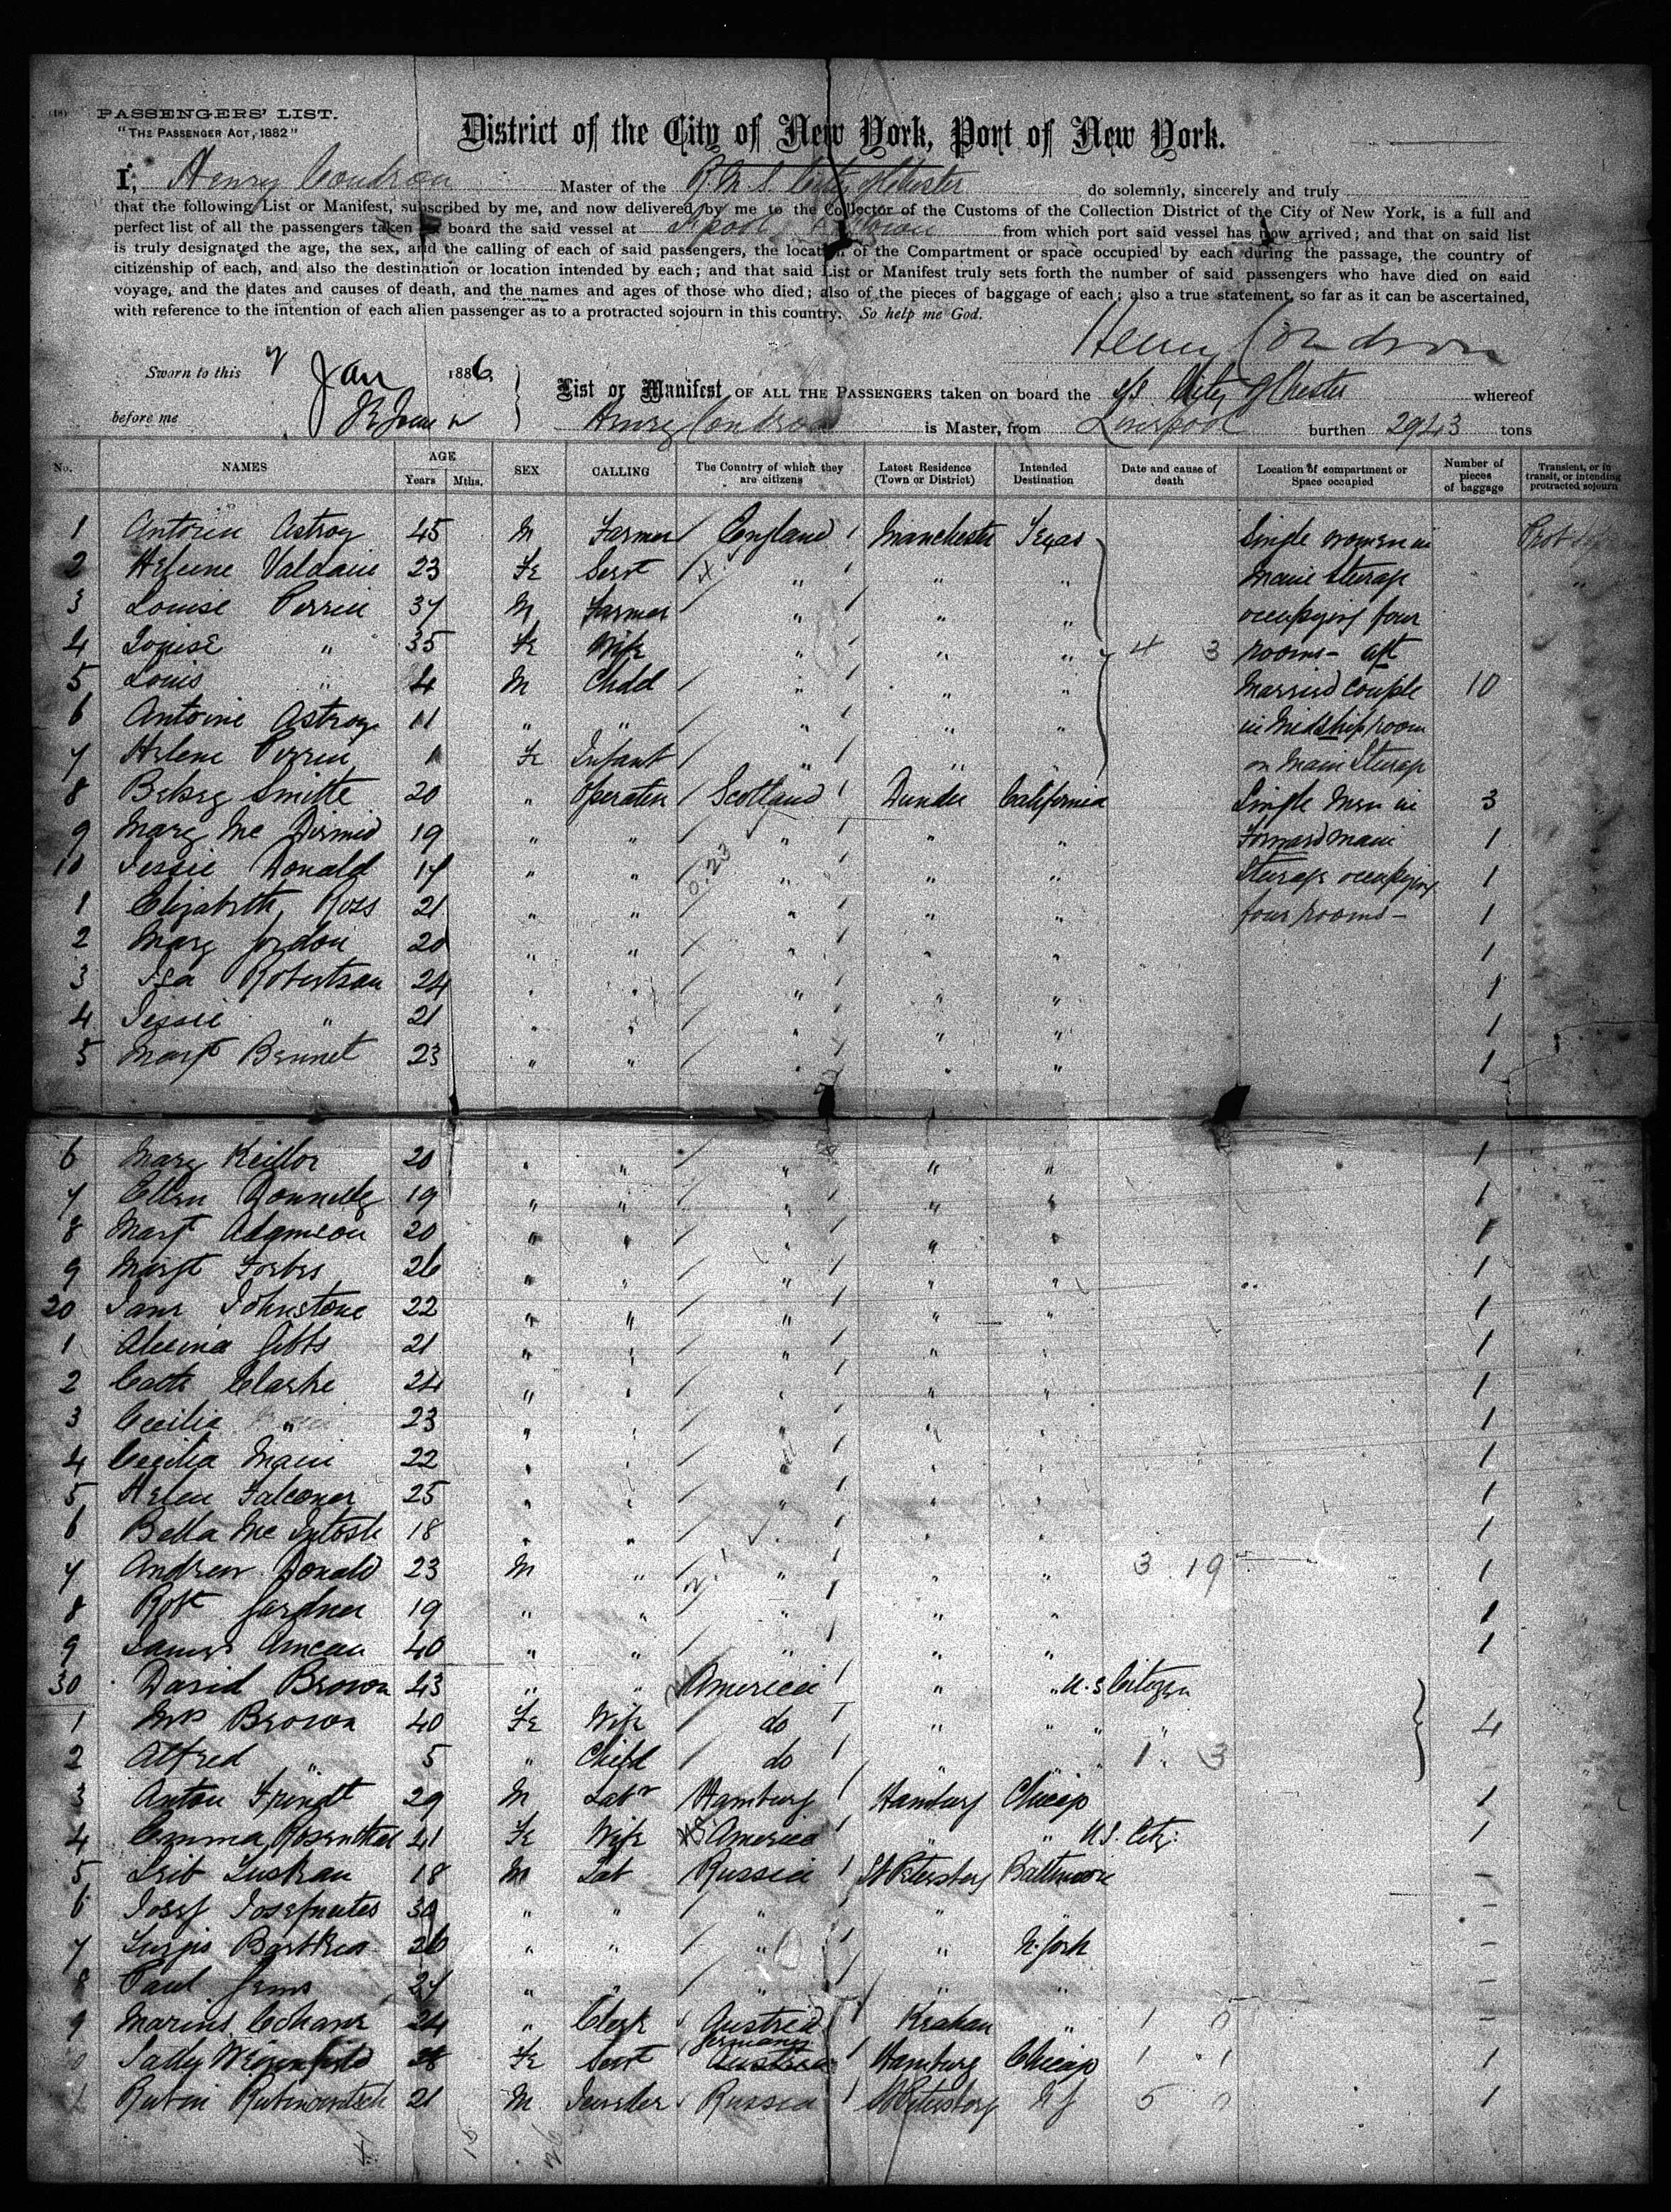 PASSENGERS' LIST.
"THE PASSENGER ACT, 1882"
District of the City of New York, Port of New York.
I, Henry Condron Master of the R.M.S. City of Chester do solemnly, sincerely and truly
that the following List or Manifest, subscribed by me, and now delivered by me to the Collector of the Customs of the Collection District of the City of New York, is a full and
perfect list of all the passengers taken on board the said vessel at L'pool & Q'town from which port said vessel has now arrived; and that on said list
is truly designated the age, the sex, and the calling of each of said passengers, the location of the Compartment or space occupied by each during the passage, the country of
citizenship of each, and also the destination or location intended by each; and that said List or Manifest truly sets forth the number of said passengers who have died on said
voyage, and the dates and causes of death, and the names and ages of those who died; also of the pieces of baggage of each; also a true statement, so far as it can be ascertained,
with reference to the intention of each alien passenger as to a protracted sojourn in this country. So help me God.
Henry Condron
Sworn to this Jan 1886
before me
List or Manifest OF ALL THE PASSENGERS taken on board the S/S City of Chester whereof
Henry Condron is Master, from Liverpool burthen 2943 tons
No. NAMES AGE Years Mths. SEX CALLING The Country of which they are citizens Latest Residence (Town or District) Intended Destination Date and cause of death Location of compartment or Space occupied Number of pieces of baggage Transient, or in transit, or intending protracted sojourn
1 Antoine Astroy 45 M Farmer England Manchester Texas Single women in Prot
2 Helene Valdaire 23 Fe Servt " " " Main Steerage "
3 Louise Perrin 37 M Farmer " " " occupying four
4 Louise " 35 Fe Wife " " " 4 3 rooms - aft
5 Louis " 4 M Child " " " Married Couple 10
6 Antoine Astroy 11 " " " " " in Midship room
7 Helene Perrin 1 Fe Infant " " " on Main Steerage
8 Betsey Smitte 20 " Operater Scotland Dundee California Single Men in 3
9 Mary Mc Dirmid 19 " " " " " Forward main 1
10 Jessie Donald 17 " " " " " Steerage occupying 1
1 Elizabeth Ross 21 " " " " " four rooms - 1
2 Mary Gordon 20 " " " " " 1
3 Isa Robertson 24 " " " " " 1
4 Jessie " 21 " " " " " 1
5 Margt Bennet 23 " " " " " 1
6 Mary Keillor 20 " " " " " 1
7 Ellen Donnelly 19 " " " " " 1
8 Margt Adamson 20 " " " " " 1
9 Margt Forbes 26 " " " " " 1
20 Jane Johnstone 22 " " " " " 1
1 Alexina Gibbs 21 " " " " " 1
2 Cath Clarke 24 " " " " " 1
3 Cecilia " 23 " " " " " 1
4 Cecilia Main 22 " " " " " 1
5 Helen Falconer 25 " " " " " 1
6 Bella Mc Intosh 18 " " " " " 1
7 Andrew Donald 23 M " " " " 3 19 1
8 Robt Gardner 19 " " " " " 1
9 James Duncan 40 " " " " " 1
30 David Brown 43 " " America " " U.S Citizen
1 Mrs Brown 40 Fe Wife do " " " 4
2 Alfred " 5 " Child do " " " 1 3
3 Anton 29 M Labr Hamburg Hamburg Chicago 1
4 Emma Rosenthal 41 Fe Wife America " " U.S. Citz. 1
5 18 M Lab Russia St Petersborg Baltimore -
6 Josef 30 " " " " " -
7 Jurgis Bartkus 26 " " " " N. York -
8 Paul 27 " " " " " -
9 Marius 24 " Clerk Austria Krakau " 1 0 -
0 Sally 28 Fe Servt Germany Austria Hamburg Chicago 1 1 1
1 Rubin 21 M Russia St Petersborg N Y 5 0 1